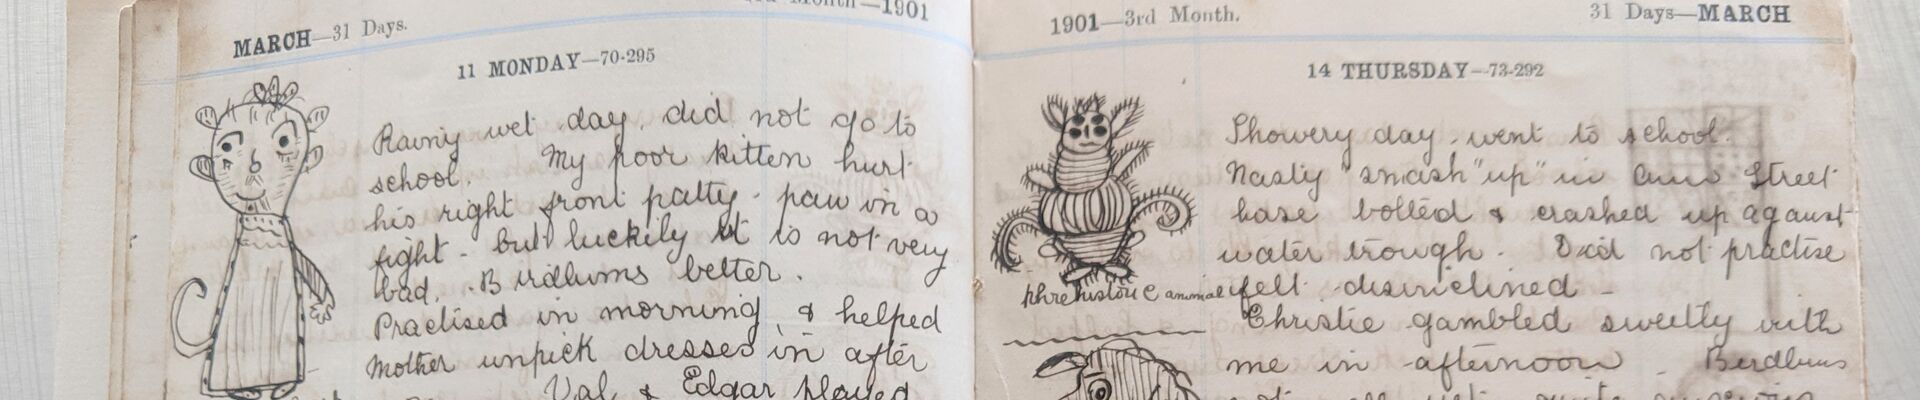 MARCH—31 Days.
Month—1901
11 MONDAY—70-295
Rainy wet day. did not go to
school. My poor kitten hurt
his right front patty-paw in a
fight - but luckily it is not very
bad. Birdlums better.
Practised in morning & helped
Mother unpick dresses in after
Val & Edgar played
1901—3rd Month.
31 Days—MARCH
14 THURSDAY—73-292
Showery day. went to school.
Nasty "smash" up" in Street
bolted & crashed up against
water trough. Did not practise
felt disinclined -
Christie gambled sweetly with
me in afternoon. Birdlums
phrehistoric animal